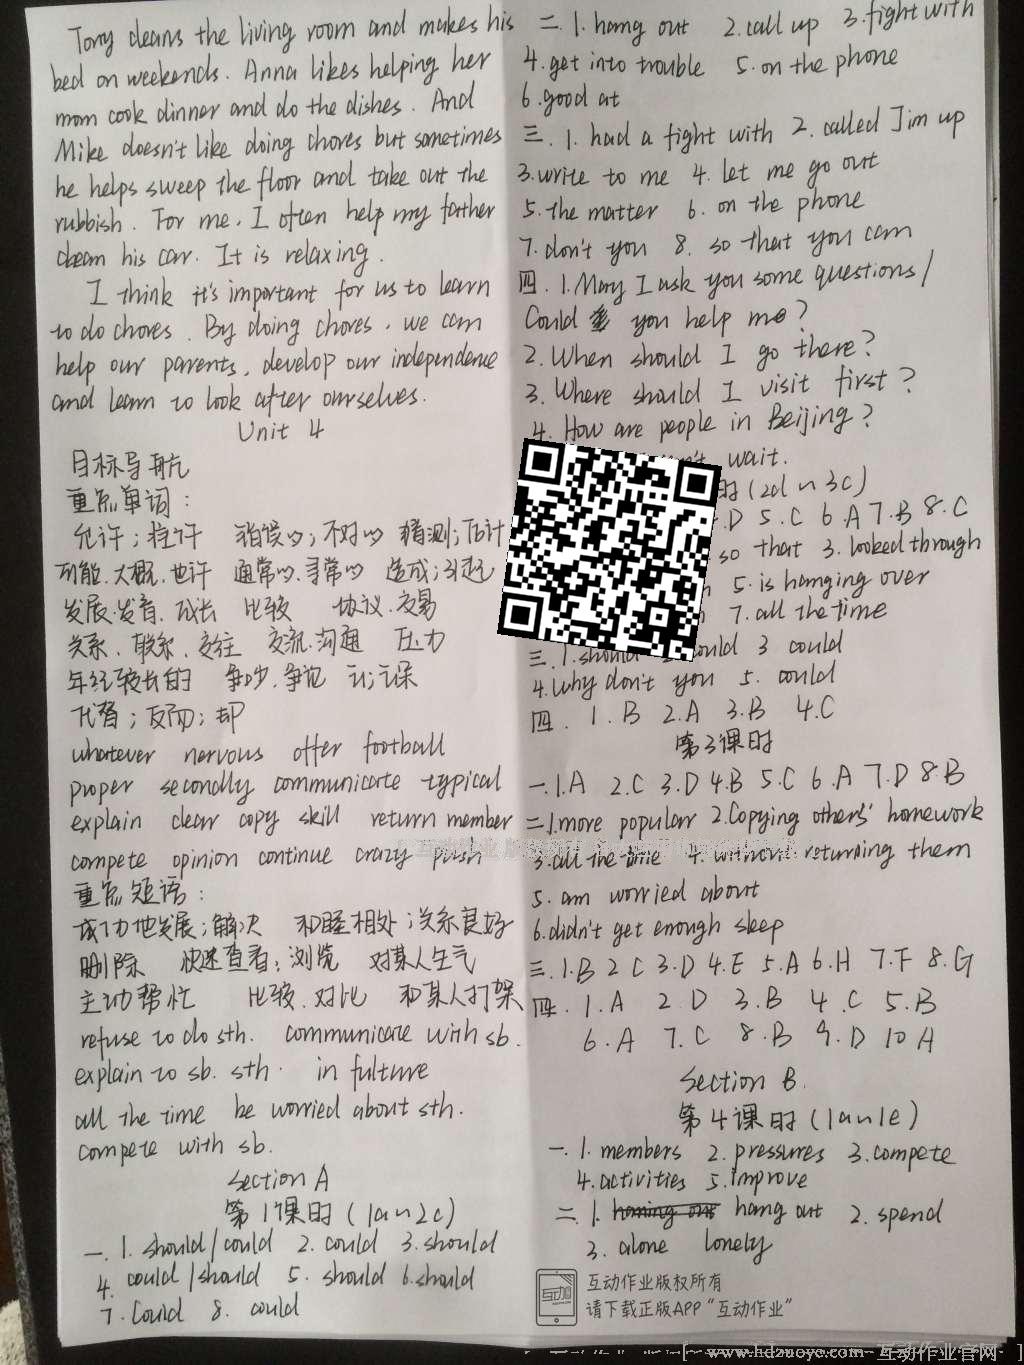 Tony cleans the living room and makes his
bed on weekends. Anna likes helping her
mom cook dinner and do the dishes. And
Mike doesn't like doing chores but sometimes
he helps sweep the floor and take out the
rubbish. For me, I often help my father
clean his car. It is relaxing.
I think it's important for us to learn
to do chores. By doing chores, we can
help our parents, develop our independence
and learn to look after ourselves.
Unit 4
目标导航
重点单词:
允许;准许 错误的;不对的 猜测;估计
可能.大概.也许 通常的.寻常的 造成;引起
发展.发育.成长 比较 协议.交易
关系.联系.交往 交流.沟通 压力
年纪较长的 争吵.争论
代替;反而;却
whatever nervous offer football
proper secondly communicate typical
explain clear copy skill return member
compete opinion continue crazy push
重点短语:
成功地发展;解决 和睦相处;关系良好
删除 快速查看;浏览 对某人生气
主动帮忙 比较.对比 和某人打架
refuse to do sth. communicate with sb.
explain to sb. sth. in fulture
all the time be worried about sth.
compete with sb.
Section A
第1课时(1a~2c)
一.1. should/could 2. could 3. should
4. could/should 5. should 6. should
7. Could 8. could
二.1. hang out 2. call up 3. fight with
4. get into trouble 5. on the phone
6. good at
三.1. had a fight with 2. called Jim up
3. write to me 4. let me go out
5. the matter 6. on the phone
7. don't you 8. so that you can
四.1. May I ask you some questions/
Could you help me?
2. When should I go there?
3. Where should I visit first?
4. How are people in Beijing?
wait.
时(2d~3c)
D 5.C 6.A 7.B 8.C
so that 3. looked through
5. is hanging over
7. all the time
三.1. should could 3 could
4. Why don't you 5. could
四. 1. B 2.A 3.B 4.C
第3课时
一.1.A 2.C 3.D 4.B 5.C 6.A 7.D 8.B
二.1. more popular 2. Copying others' homework
3. all the time 4. without returning them
5. am worried about
6. didn't get enough sleep
三.1.B 2 C 3.D 4.E 5.A 6.H 7.F 8.G
四.1.A 2.D 3.B 4.C 5.B
6.A 7.C 8.B 9.D 10 A
Section B.
第4课时(1a~1e)
一.1. members 2. pressures 3. compete
4. activities 5. improve
二.1. hang out 2. spend
3. alone lonely
互动作业版权所有
请下载正版APP“互动作业”
www.hdzuoye.com 互动作业官网